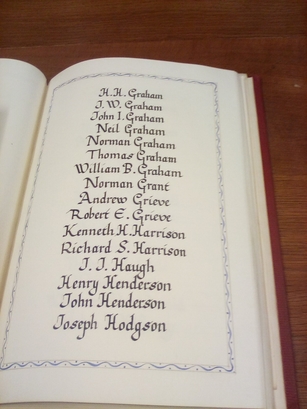 H. H. Graham
J. W. Graham
John I. Graham
Neil Graham
Norman Graham
Thomas Graham
William B. Graham
Norman Grant
Andrew Grieve
Robert E. Grieve
Kenneth H. Harrison
Richard S. Harrison
J. J. Haugh
Henry Henderson
John Henderson
Joseph Hodgson